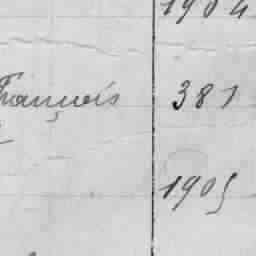 1904
François 381
1905